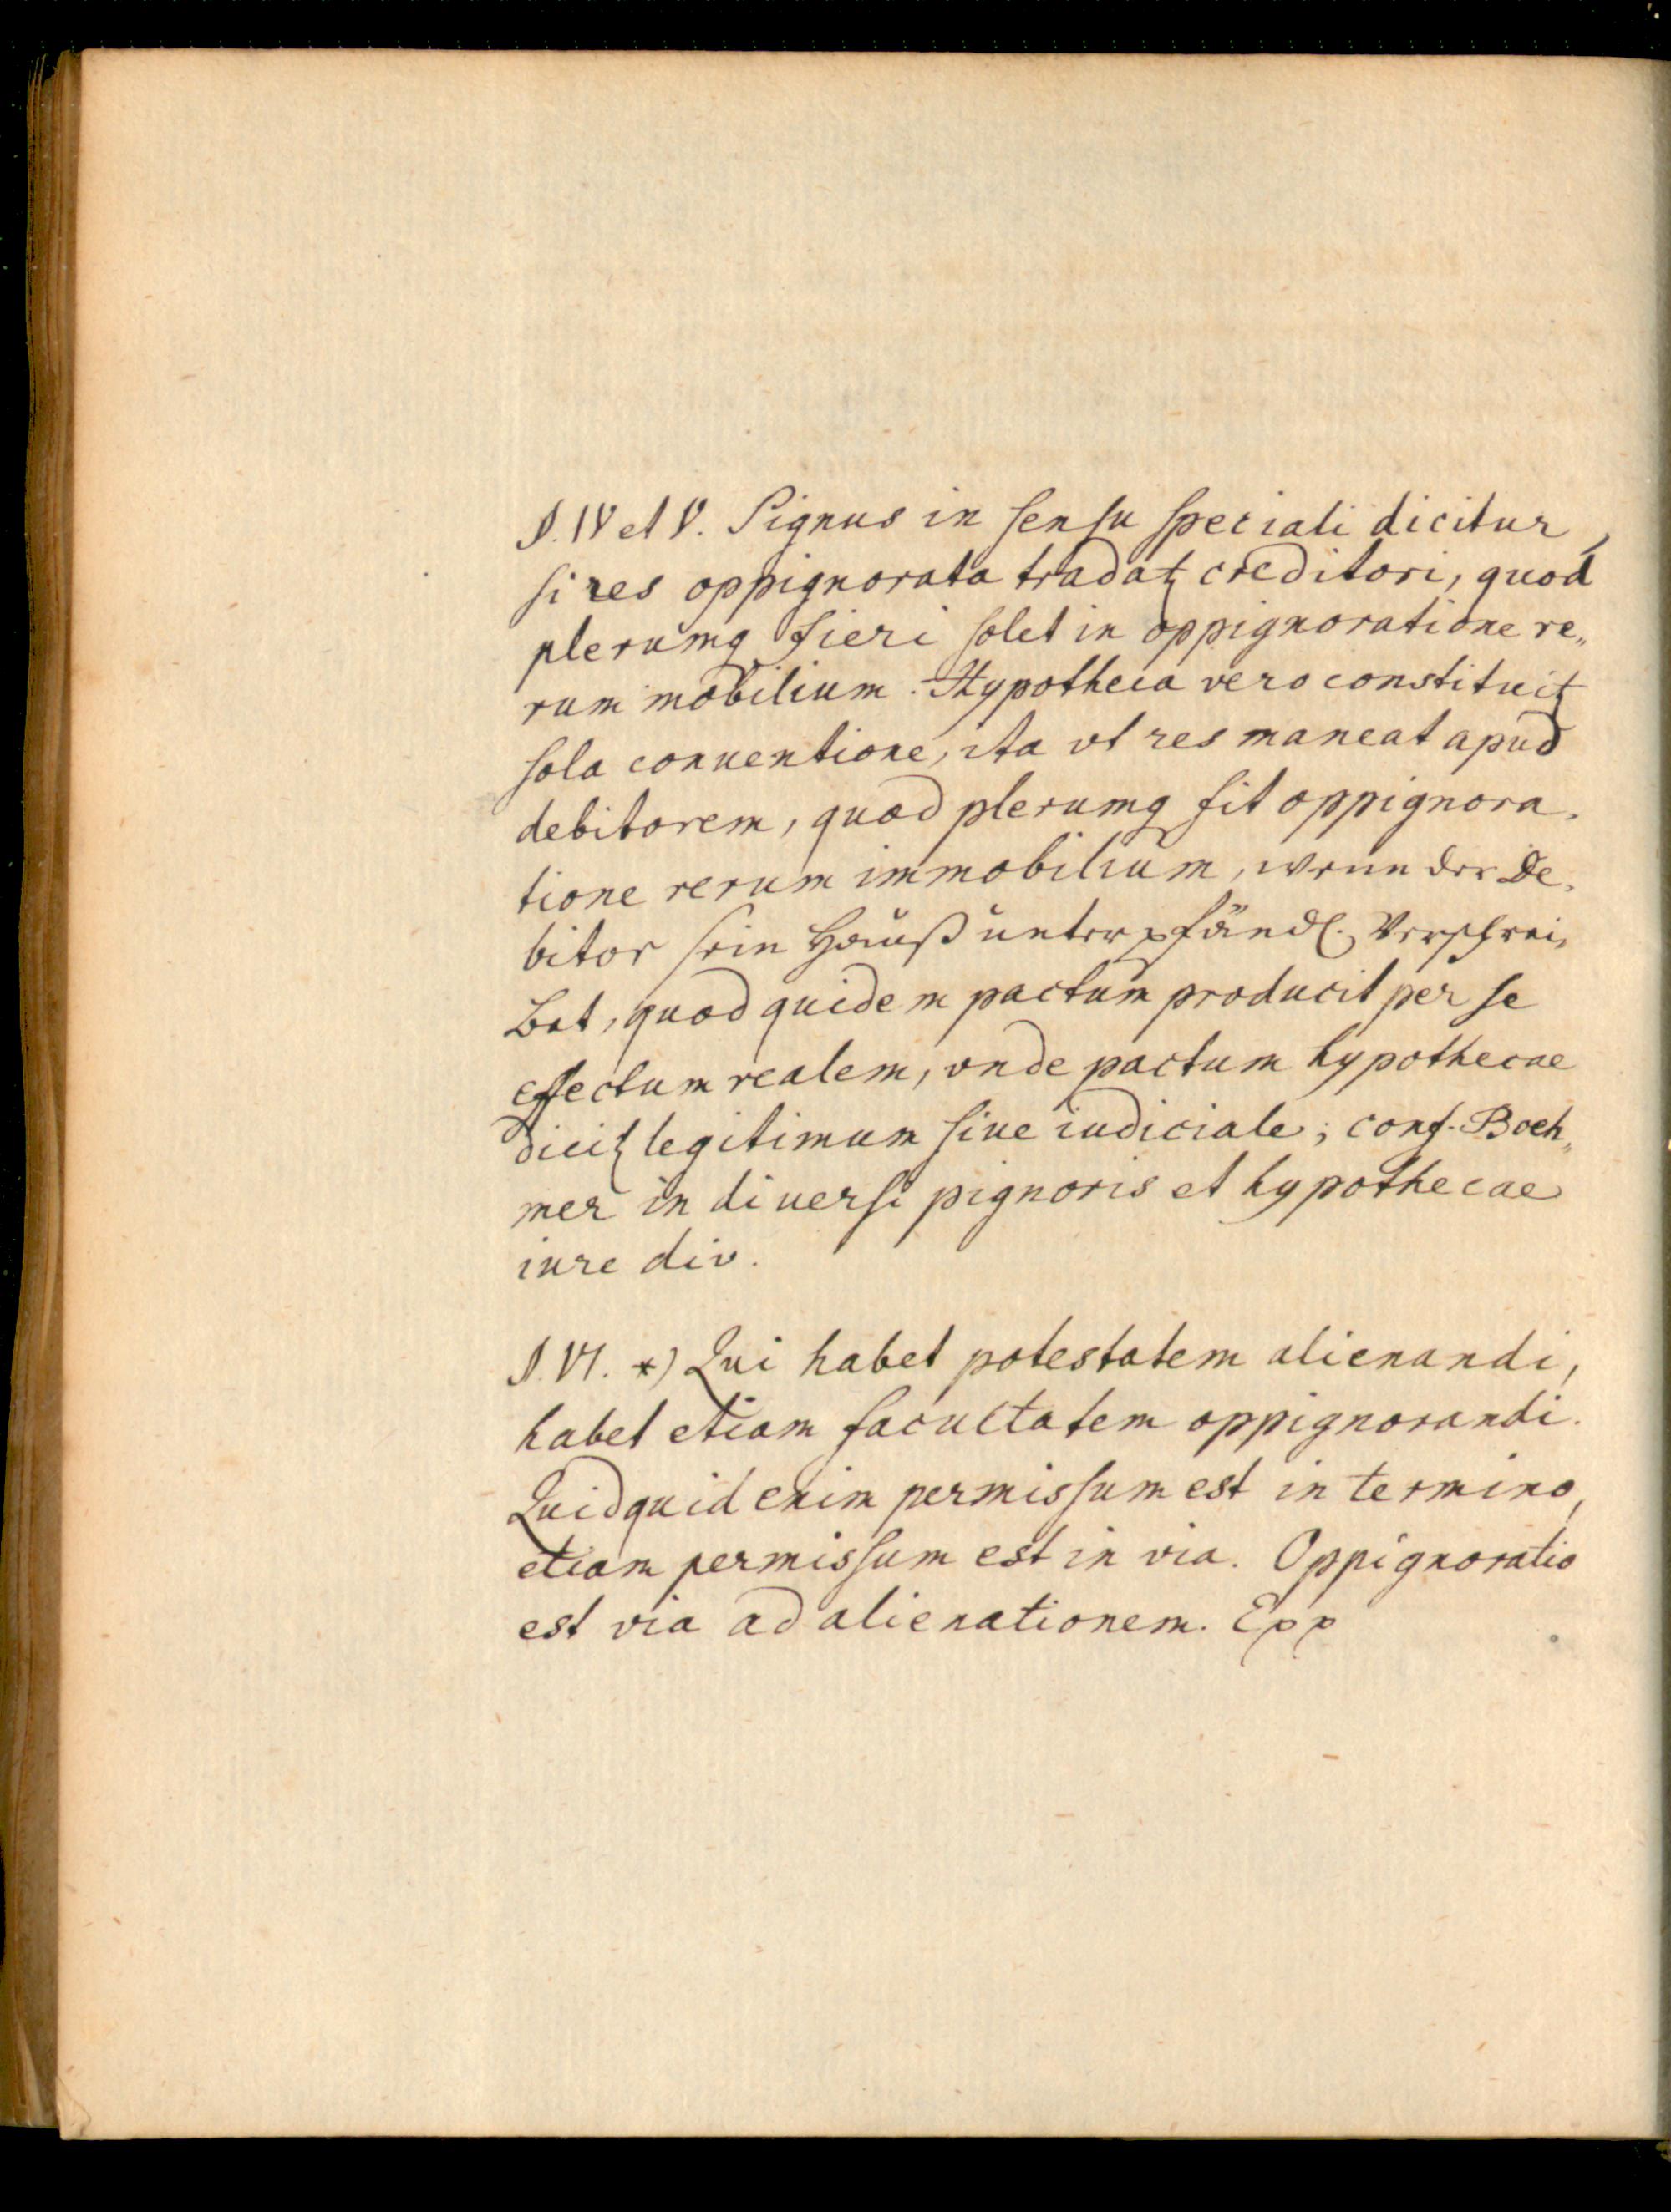 §. IV et V. Pignus in sensu speciali dicitur,
si res oppignorata tradatꝛ creditori, quod
plerumq fieri solet in oppignoratione re„
rum mobilium. Hypotheca vero constituitꝛ
sola conuentione, ita vt res maneat apud
debitorem, quod plerumq fit oppignora„
tione rerum immobilium, wenn der De„
bitor sein Hauß unterpfändl. Verschrei„
bet, quod quidem pactum producit per se
effectum realem, vnde pactum hypothecae
dicitꝛ legitimum siue iudiciale; conf. Boeh„
mer in diuersi pignoris et hypothecae
iure div.
§. VI. *) Qui habet potestatem alienandi,
habet etiam facultatem oppignorandi.
Quidquid enim permissum est in termino,
etiam permissum est in via. Oppignoratio
est via ad alienationem. Epp